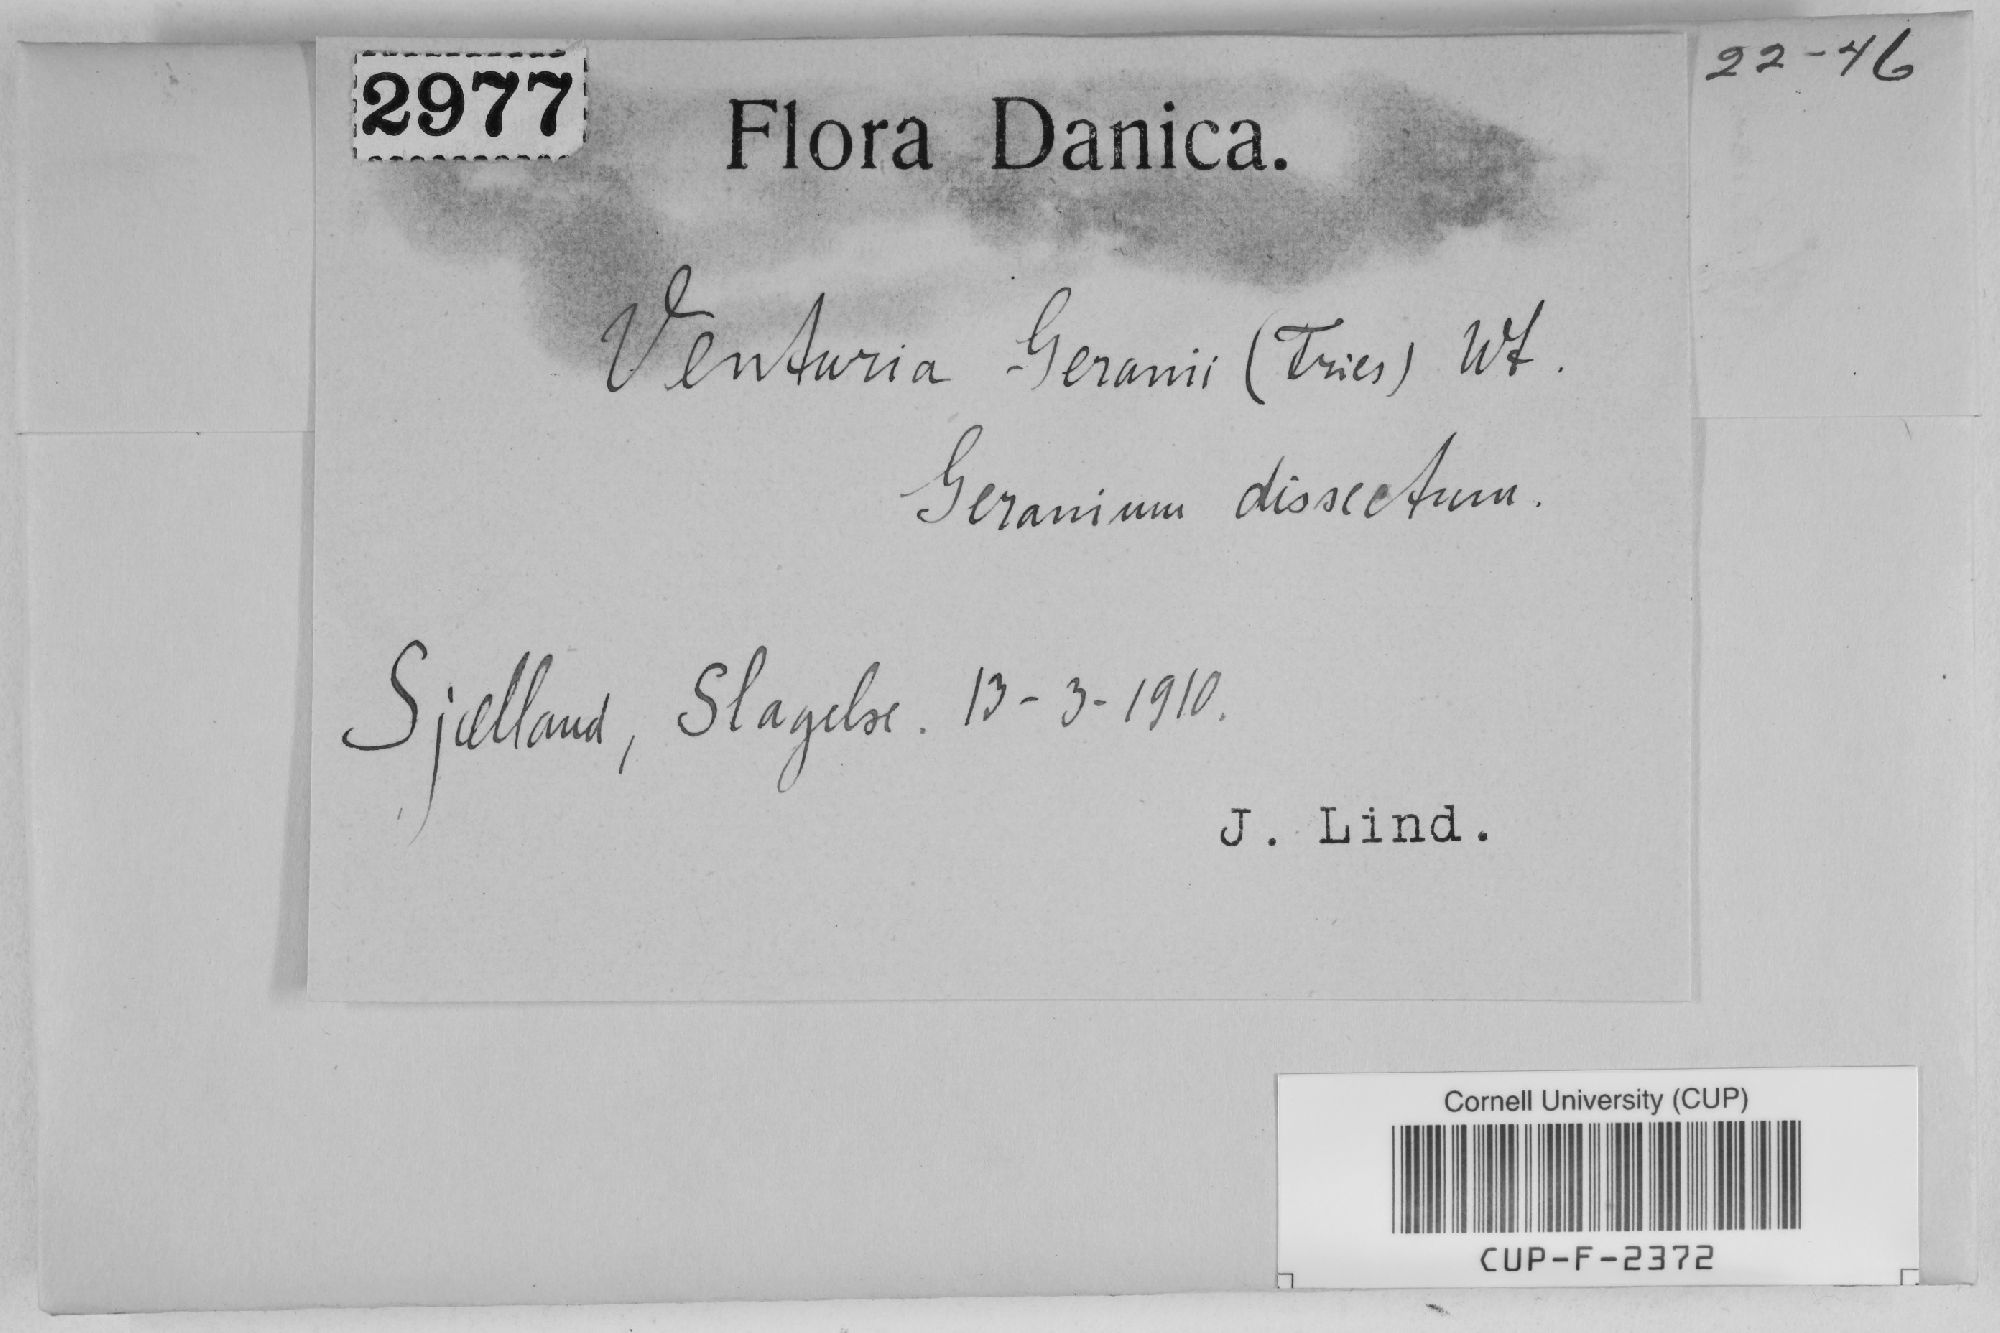 22-46
2977
Flora Danica.
Venturia Geranii (Fries) Wt.
Geranium dissectum.
Sjælland, Slagelse. 13-3-1910.
J. Lind.
Cornell University (CUP)
CUP-F-2372